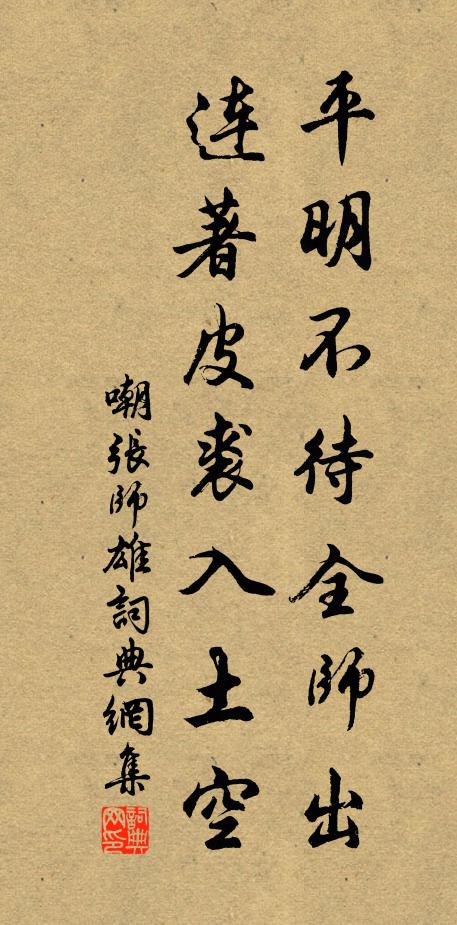 平明不待全師出
連著皮裘入土空
嘲張師雄詞典網集
詞典网印